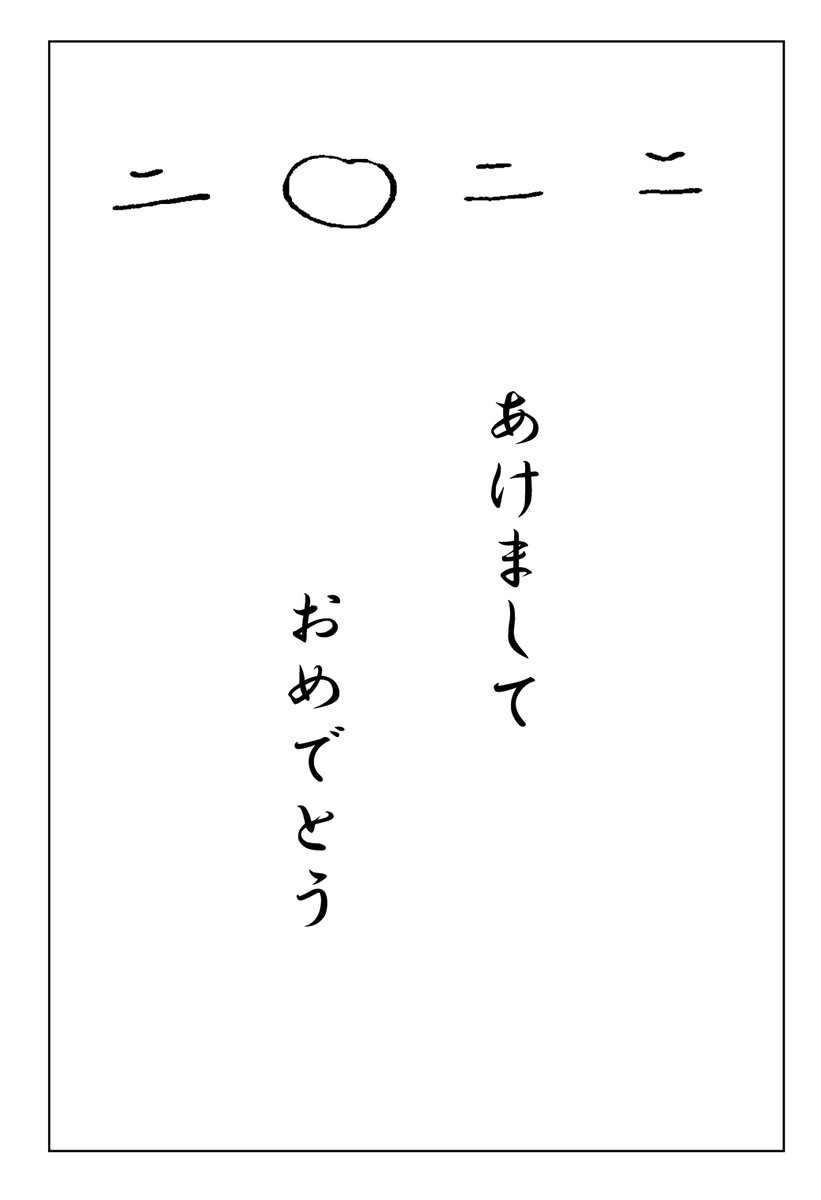 二〇二二
あけまして
おめでとう